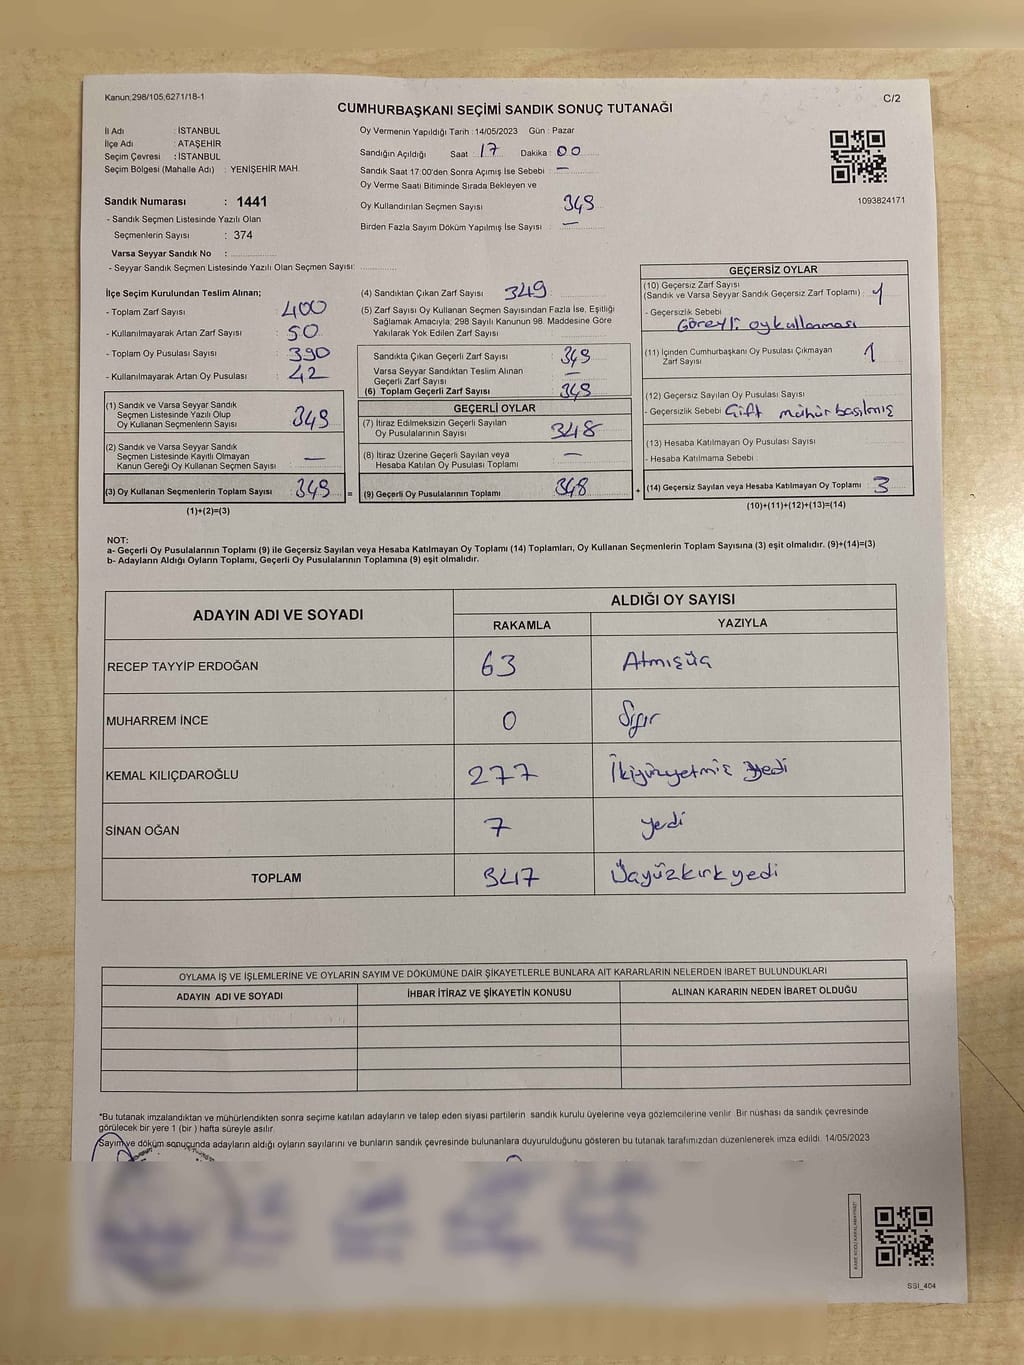 Kanun;298/105,6271/18-1
C/2
CUMHURBAŞKANI SEÇİMİ SANDIK SONUÇ TUTANAĞI
İl Adı : İSTANBUL
İlçe Adı : ATAŞEHİR
Seçim Çevresi : İSTANBUL
Seçim Bölgesi (Mahalle Adı) : YENİŞEHİR MAH.
Sandık Numarası : 1441
- Sandık Seçmen Listesinde Yazılı Olan
Seçmenlerin Sayısı : 374
Varsa Seyyar Sandık No :
- Seyyar Sandık Seçmen Listesinde Yazılı Olan Seçmen Sayısı:
Oy Vermenin Yapıldığı Tarih : 14/05/2023 Gün : Pazar
Sandığın Açıldığı Saat : 17 Dakika : 00
Sandık Saat 17:00'den Sonra Açımış İse Sebebi : —
Oy Verme Saati Bitiminde Sırada Bekleyen ve
Oy Kullandırılan Seçmen Sayısı 349
Birden Fazla Sayım Döküm Yapılmış İse Sayısı : —
1093824171
İlçe Seçim Kurulundan Teslim Alınan;
- Toplam Zarf Sayısı : 400
- Kullanılmayarak Artan Zarf Sayısı : 50
- Toplam Oy Pusulası Sayısı : 390
- Kullanılmayarak Artan Oy Pusulası : 42
(1) Sandık ve Varsa Seyyar Sandık
Seçmen Listesinde Yazılı Olup
Oy Kullanan Seçmenlerin Sayısı 349
(2) Sandık ve Varsa Seyyar Sandık
Seçmen Listesinde Kayıtlı Olmayan
Kanun Gereği Oy Kullanan Seçmen Sayısı —
(3) Oy Kullanan Seçmenlerin Toplam Sayısı 349 =
(1)+(2)=(3)
(4) Sandıktan Çıkan Zarf Sayısı 349
(5) Zarf Sayısı Oy Kullanan Seçmen Sayısından Fazla İse, Eşitliği
Sağlamak Amacıyla; 298 Sayılı Kanunun 98. Maddesine Göre
Yakılarak Yok Edilen Zarf Sayısı
Sandıkta Çıkan Geçerli Zarf Sayısı 349
Varsa Seyyar Sandıktan Teslim Alınan
Geçerli Zarf Sayısı —
(6) Toplam Geçerli Zarf Sayısı 349
GEÇERLİ OYLAR
(7) İtiraz Edilmeksizin Geçerli Sayılan
Oy Pusulalarının Sayısı 348
(8) İtiraz Üzerine Geçerli Sayılan veya
Hesaba Katılan Oy Pusulası Toplamı —
(9) Geçerli Oy Pusulalarının Toplamı 348 +
GEÇERSİZ OYLAR
(10) Geçersiz Zarf Sayısı
(Sandık ve Varsa Seyyar Sandık Geçersiz Zarf Toplamı) : 1
- Geçersizlik Sebebi
Görevli oy kullanması
(11) İçinden Cumhurbaşkanı Oy Pusulası Çıkmayan
Zarf Sayısı 1
(12) Geçersiz Sayılan Oy Pusulası Sayısı
- Geçersizlik Sebebi Çift mühür basılmış
(13) Hesaba Katılmayan Oy Pusulası Sayısı
- Hesaba Katılmama Sebebi :
(14) Geçersiz Sayılan veya Hesaba Katılmayan Oy Toplamı 3
(10)+(11)+(12)+(13)=(14)
NOT:
a- Geçerli Oy Pusulalarının Toplamı (9) ile Geçersiz Sayılan veya Hesaba Katılmayan Oy Toplamı (14) Toplamları, Oy Kullanan Seçmenlerin Toplam Sayısına (3) eşit olmalıdır. (9)+(14)=(3)
b- Adayların Aldığı Oyların Toplamı, Geçerli Oy Pusulalarının Toplamına (9) eşit olmalıdır.
ADAYIN ADI VE SOYADI
ALDIĞI OY SAYISI
RAKAMLA YAZIYLA
RECEP TAYYİP ERDOĞAN 63 Atmışüç
MUHARREM İNCE 0 Sıfır
KEMAL KILIÇDAROĞLU 277 İkiyüzyetmiş yedi
SİNAN OĞAN 7 yedi
TOPLAM 347 Üçyüzkırkyedi
OYLAMA İŞ VE İŞLEMLERİNE VE OYLARIN SAYIM VE DÖKÜMÜNE DAİR ŞİKAYETLERLE BUNLARA AİT KARARLARIN NELERDEN İBARET BULUNDUKLARI
ADAYIN ADI VE SOYADI İHBAR İTİRAZ VE ŞİKAYETİN KONUSU ALINAN KARARIN NEDEN İBARET OLDUĞU
*Bu tutanak imzalandıktan ve mühürlendikten sonra seçime katılan adayların ve talep eden siyasi partilerin sandık kurulu üyelerine veya gözlemcilerine verilir. Bir nüshası da sandık çevresinde
görülecek bir yere 1 (bir ) hafta süreyle asılır.
Sayım ve döküm sonucunda adayların aldığı oyların sayılarını ve bunların sandık çevresinde bulunanlara duyurulduğunu gösteren bu tutanak tarafımızdan düzenlenerek imza edildi. 14/05/2023
SSI_404